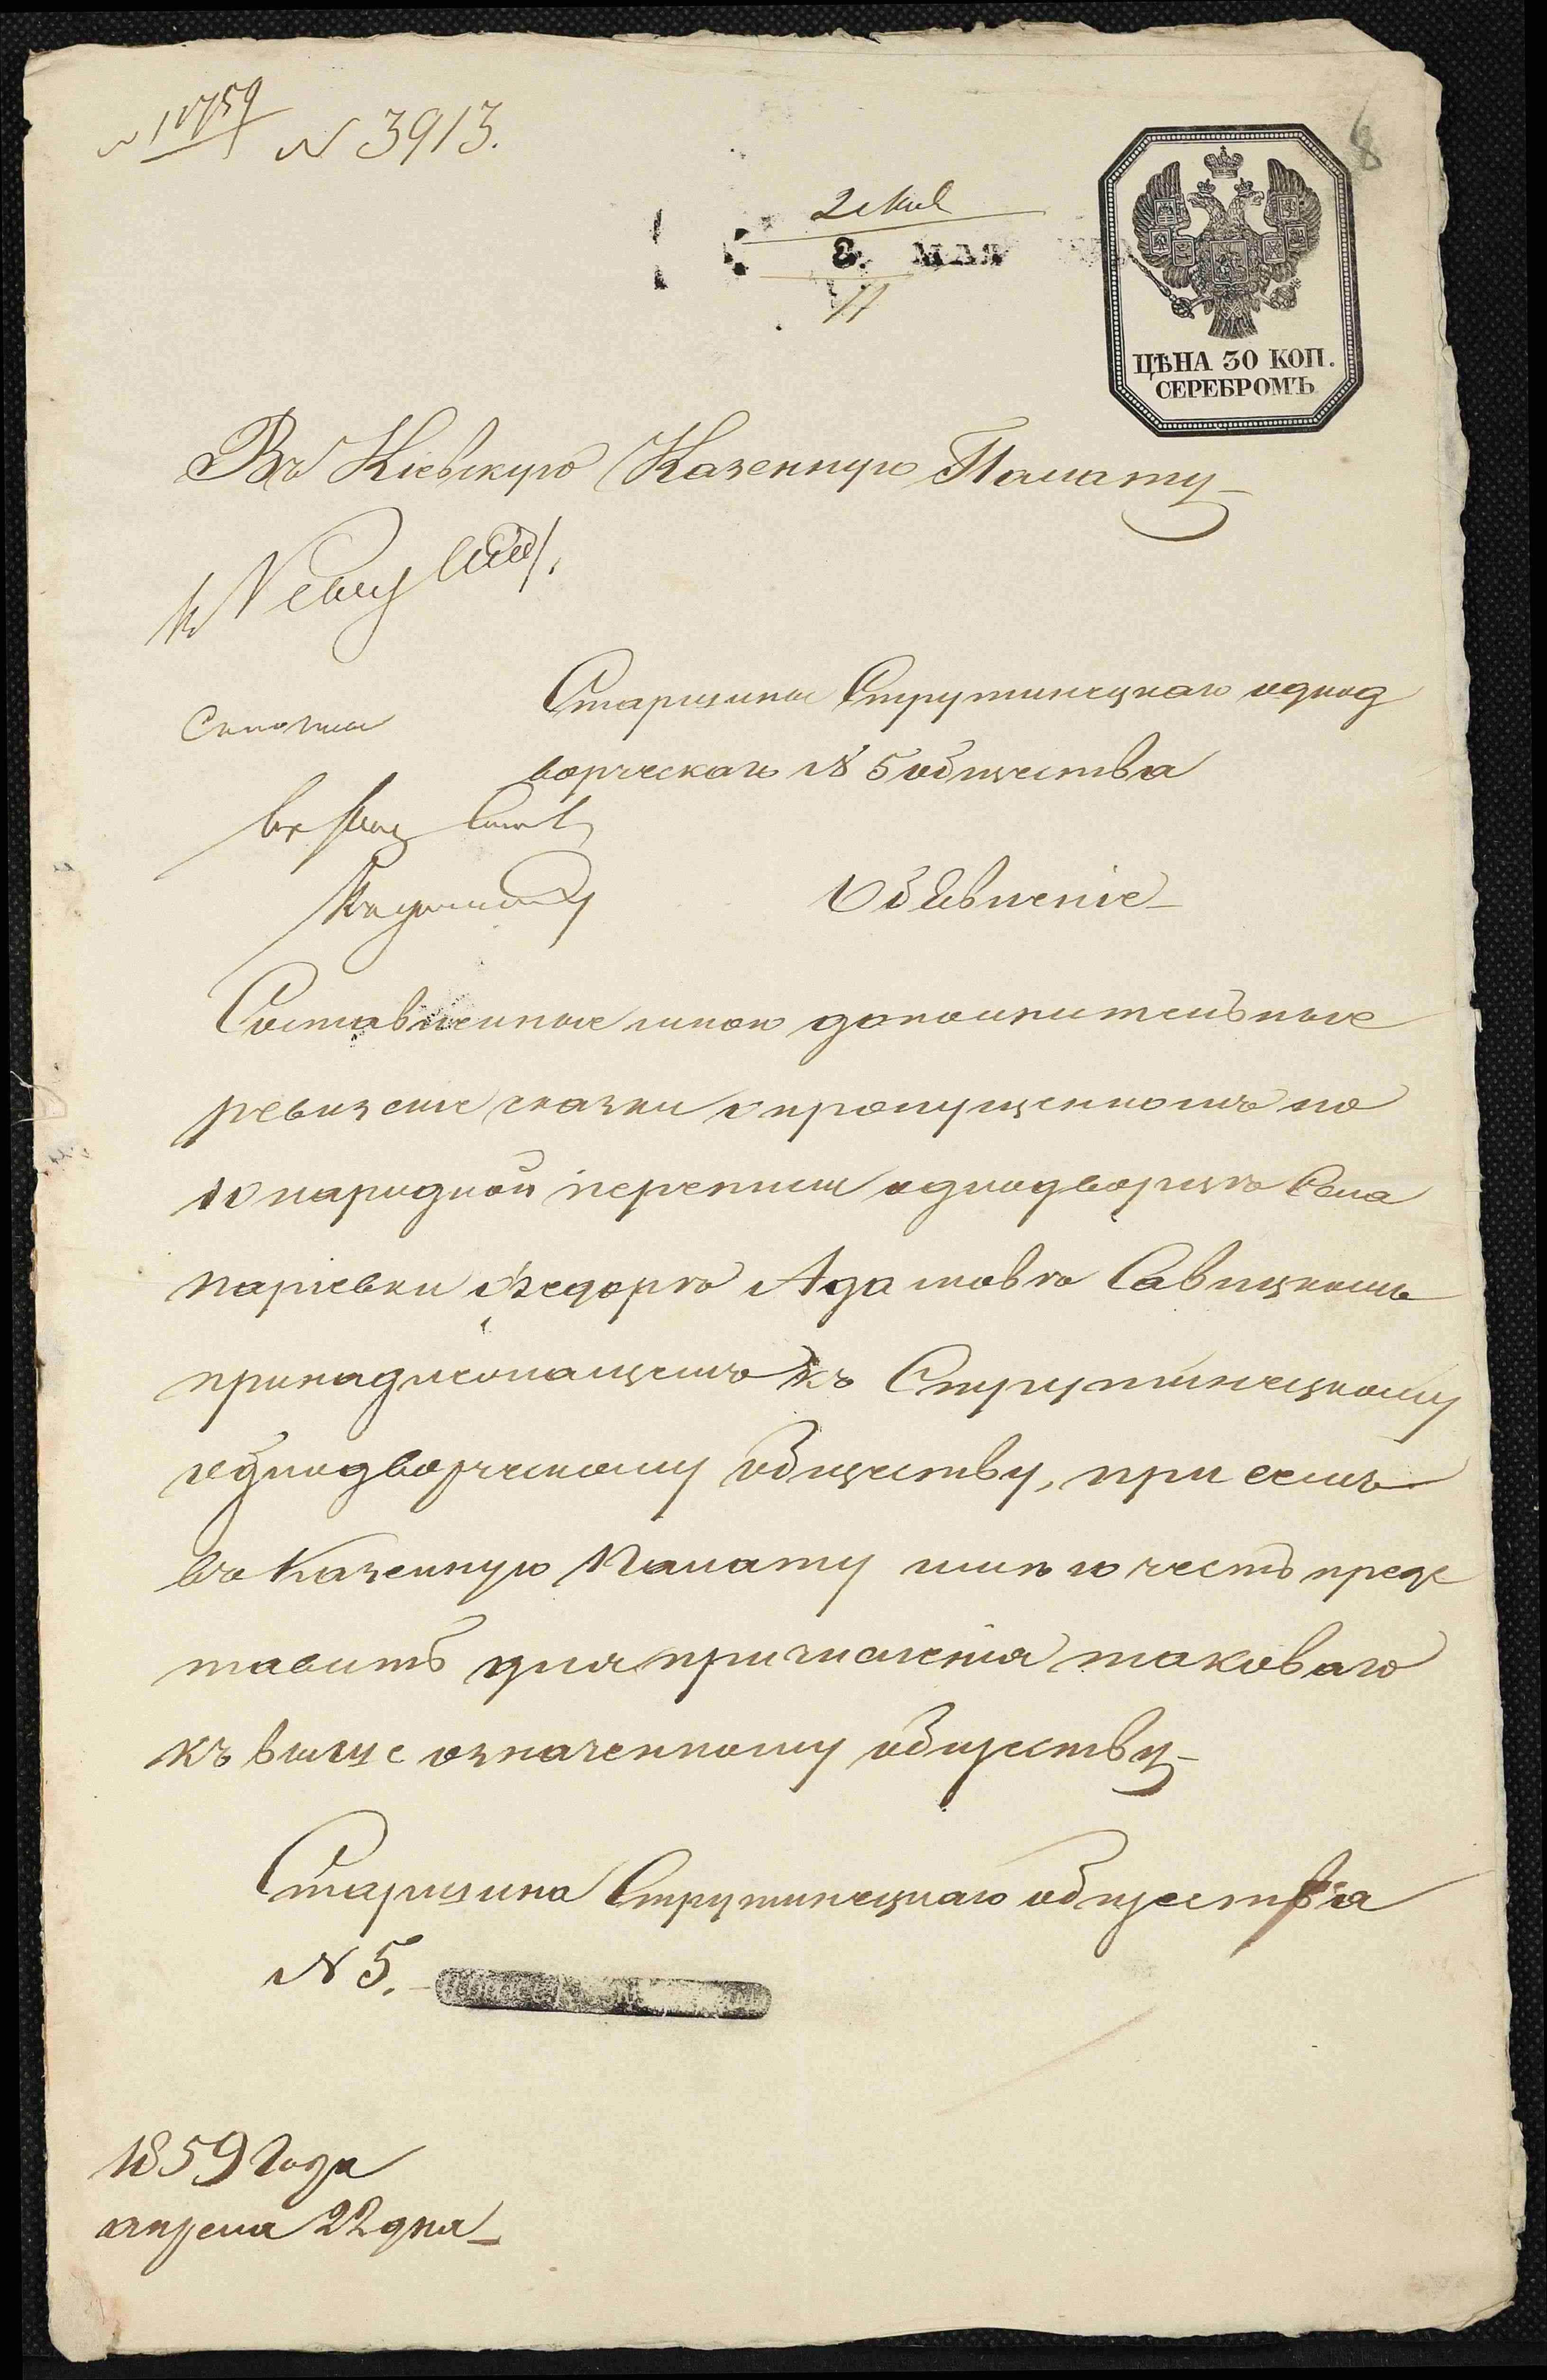 N 3913.
8
8 МАЯ
11
ЦѢНА 30 КОП.
СЕРЕБРОМЪ
Въ Кіевскую Казенную Палату
Старшины Струтинецкаго однод
ворческаго № 5 общества
Объявленіе
Составленные мною дополнительные
ревизские сказки о пропущенномъ по
10 народной переписи однодворцѣ села
Паріевки Федорѣ Адамовѣ Савицкомъ
принадлежащемъ къ Струтинецкому
однодворческому обществу, при семъ
въ Казенную Палату имѣю честь предс
тавить для причисленія таковаго
къ выше означенному обществу
Старшина Струтинецкаго общества
N 5.
1859 Года
апреля 22 дня